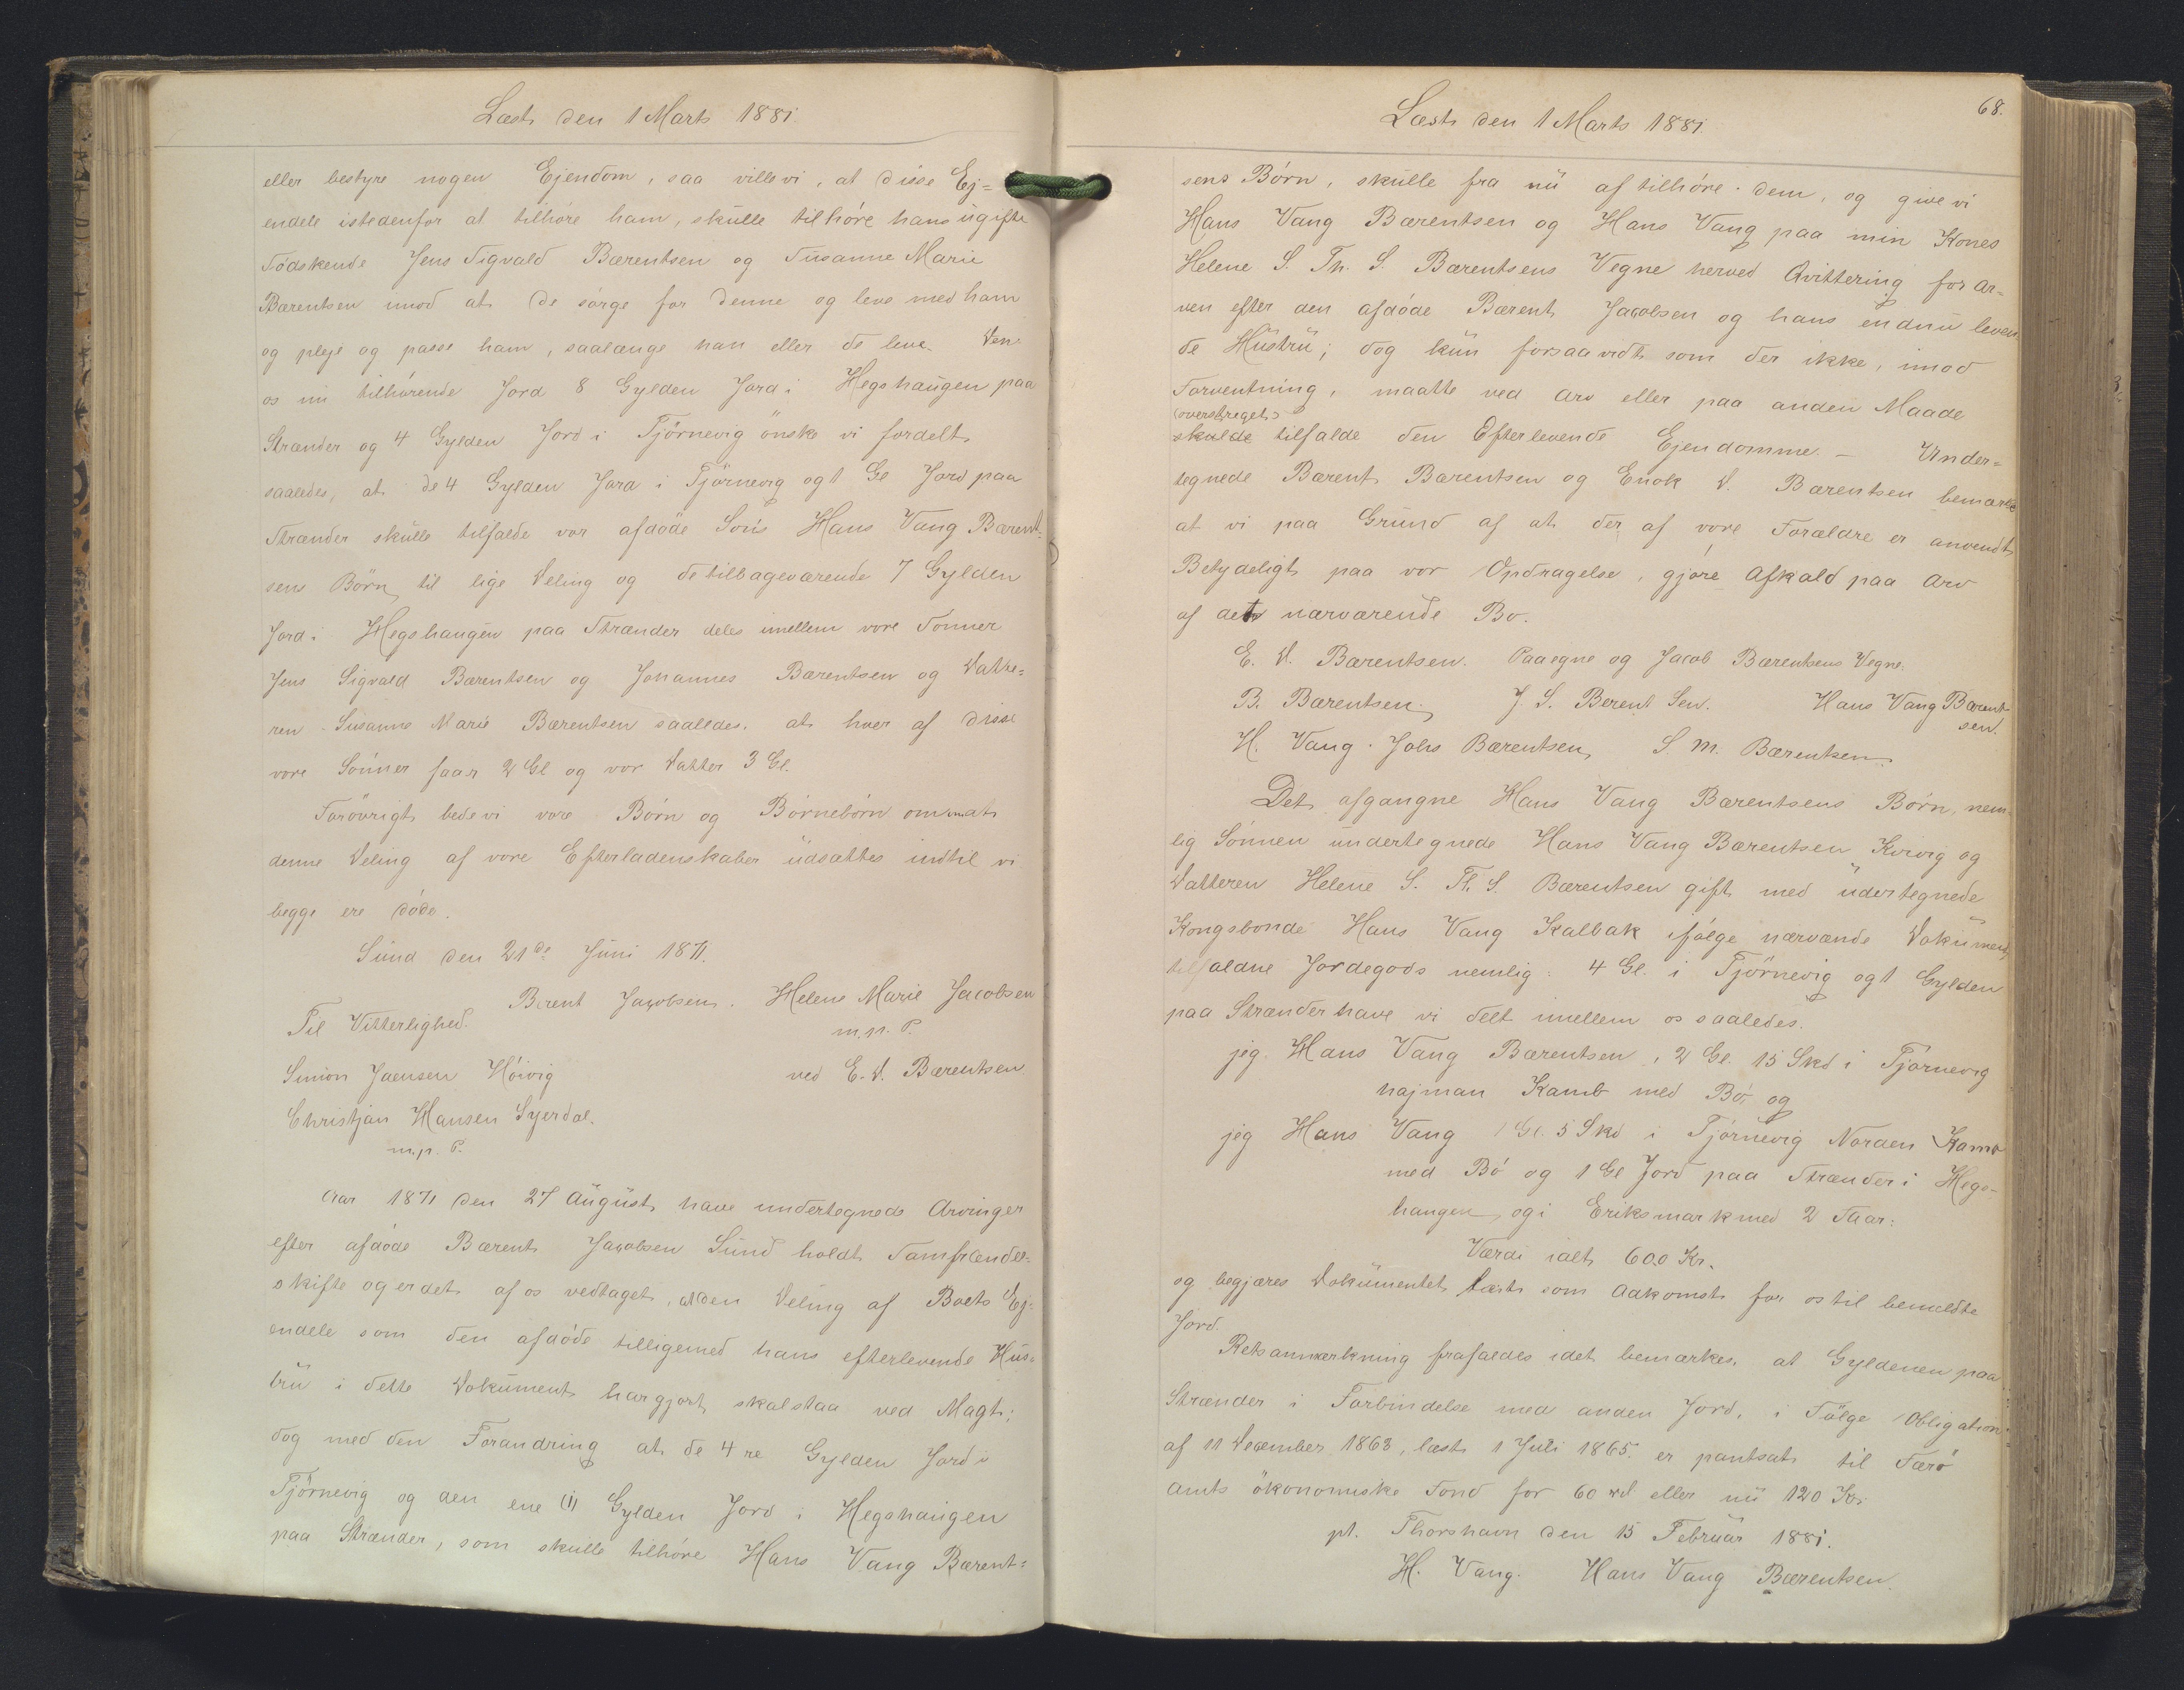 Læst den 1 Marts 1881
eller bestyre nogen Ejendom, saa ville vi, at disse Ej=
endele istedenfor at tilhøre ham, skulle tilhøre hans ugifte
Södskende Jens Sigvald Bærentsen og Susanne Marie
Bærentsen imod at de sørge for denne og leve med ham
og pleje og passe ham, saalænge han eller de leve. Den
os nu tilhørende Jord 8 Gylden Jord i Hegshaugen paa
Strænder og 4 Gylden Jord i Tjörnevig önske vi fordelt
saaledes, at de 4 Gylden Jord i Tjörnevig og 1 Gl Jord paa
Strænder skulle tilfalde vor afdøde Søns Hans Vang Bærent=
sens Börn til lige Deling og de tilbageværende 7 Gylden
Jord i Hegshaugen paa Strænder deles imellem vore Sønner
Jens Sigvald Bærentsen og Johannes Bærentsen og Datte=
ren Susanne Marie Bærentsen saaledes, at hver af disse
vore Sønner faar 2 Gl og vor Datter 3 Gl.
Forövrigt bede vi vore Børn og Børnebørn om at
denne Deling af vore Efterladenskaber udsættes indtil vi
begge ere døde.
Sund den 21de Juni 1871.
Berent Jacobsen. Helene Marie Jacobsen
Til Vitterlighed. m. p. P.
Simon Joensen Höivig ved E. D. Bærentsen
Christjan Hansen Syerdal.
m. p. P.
Aar 1871 den 27 August have undertegnede Arvinger
efter afdøde Bærent Jacobsen Sund holdt Samfrænde=
skifte og er det af os vedtaget, at den Deling af Boets Ej=
endele som den afdøde tilligemed hans efterlevende Hus=
tru i dette Dokument har gjort, skal staa ved Magt;
dog med den Forandring at de 4 re Gylden Jord i
Tjörnevig og den ene (1) Gylden Jord i Hegshaugen
paa Strænder, som skulle tilhøre Hans Vang Bærent=
68.
Læst den 1 Marts 1881.
sens Børn, skulle fra nu af tilhøre dem, og give vi
Hans Vang Bærentsen og Hans Vang paa min Kones
Helene S. Th. S. Bærentsens Vegne herved Qvittering for Ar=
ven efter den afdøde Bærent Jacobsen og hans endnu leven
de Hustru; dog kun forsaavidt som der ikke, imod
Forventning, maatte ved Arv eller paa anden Maade
(overstreget)
skulde tilfalde den Efterlevende Ejendomme. – Under=
tegnede Bærent Bærentsen og Enok D. Bærentsen bemærke
at vi paa Grund af at der af vore Forældre er anvendt
Betydeligt paa vor Opdragelse, gjøre Afkald paa Arv
af det nærværende Bo.
E. D. Bærentsen. Paa egne og Jacob Bærentsens Vegne.
B. Bærentsen. J. S. Berent Sen. Hans Vang Bærent
sen.
H. Vang. Johs Bærentsen S. M. Bærentsen.
Det afgangne Hans Vang Bærentsens Børn, nem=
lig Sønnen undertegnede Hans Vang Bærentsen Kvivig og
Datteren Helene S. Th. S. Bærentsen gift med üdertegnede
Kongsbonde Hans Vang Kalbak ifølge nærvænde Dokument
tilfaldne Jordegods nemlig: 4 Gl. i Tjörnevig og 1 Gylden
paa Strænder have vi delt imellem os saaledes.
jeg Hans Vang Bærentsen, 2 Gl. 15 Skd i Tjørnevig
hajman Kamb med Bø og
jeg Hans Vang 1 Gl. 5 Skd i Tjørnevig Norden Kamb
med Bø og 1 Gl Jord paa Strænder i Hegs=
haugen, og i Eriksmark med 2 Faar:
Værdi ialt 600 Kr.
og begjæres Dokumentet læst som Adkomst for os til bemeldte
Jord.
Retsanmærkning frafaldes idet bemærkes, at Gyldenen paa
Strænder i Forbindelse med anden Jord, i Følge Obligation=
af 11 December 1863, læst 1 Juli 1865. er pantsat til Færø
Amts ökonomiske Fond for 60 rd eller nu 120 Kr.
pt. Thorshavn den 15 Februar 1881.
H. Vang. Hans Vang Bærentsen.